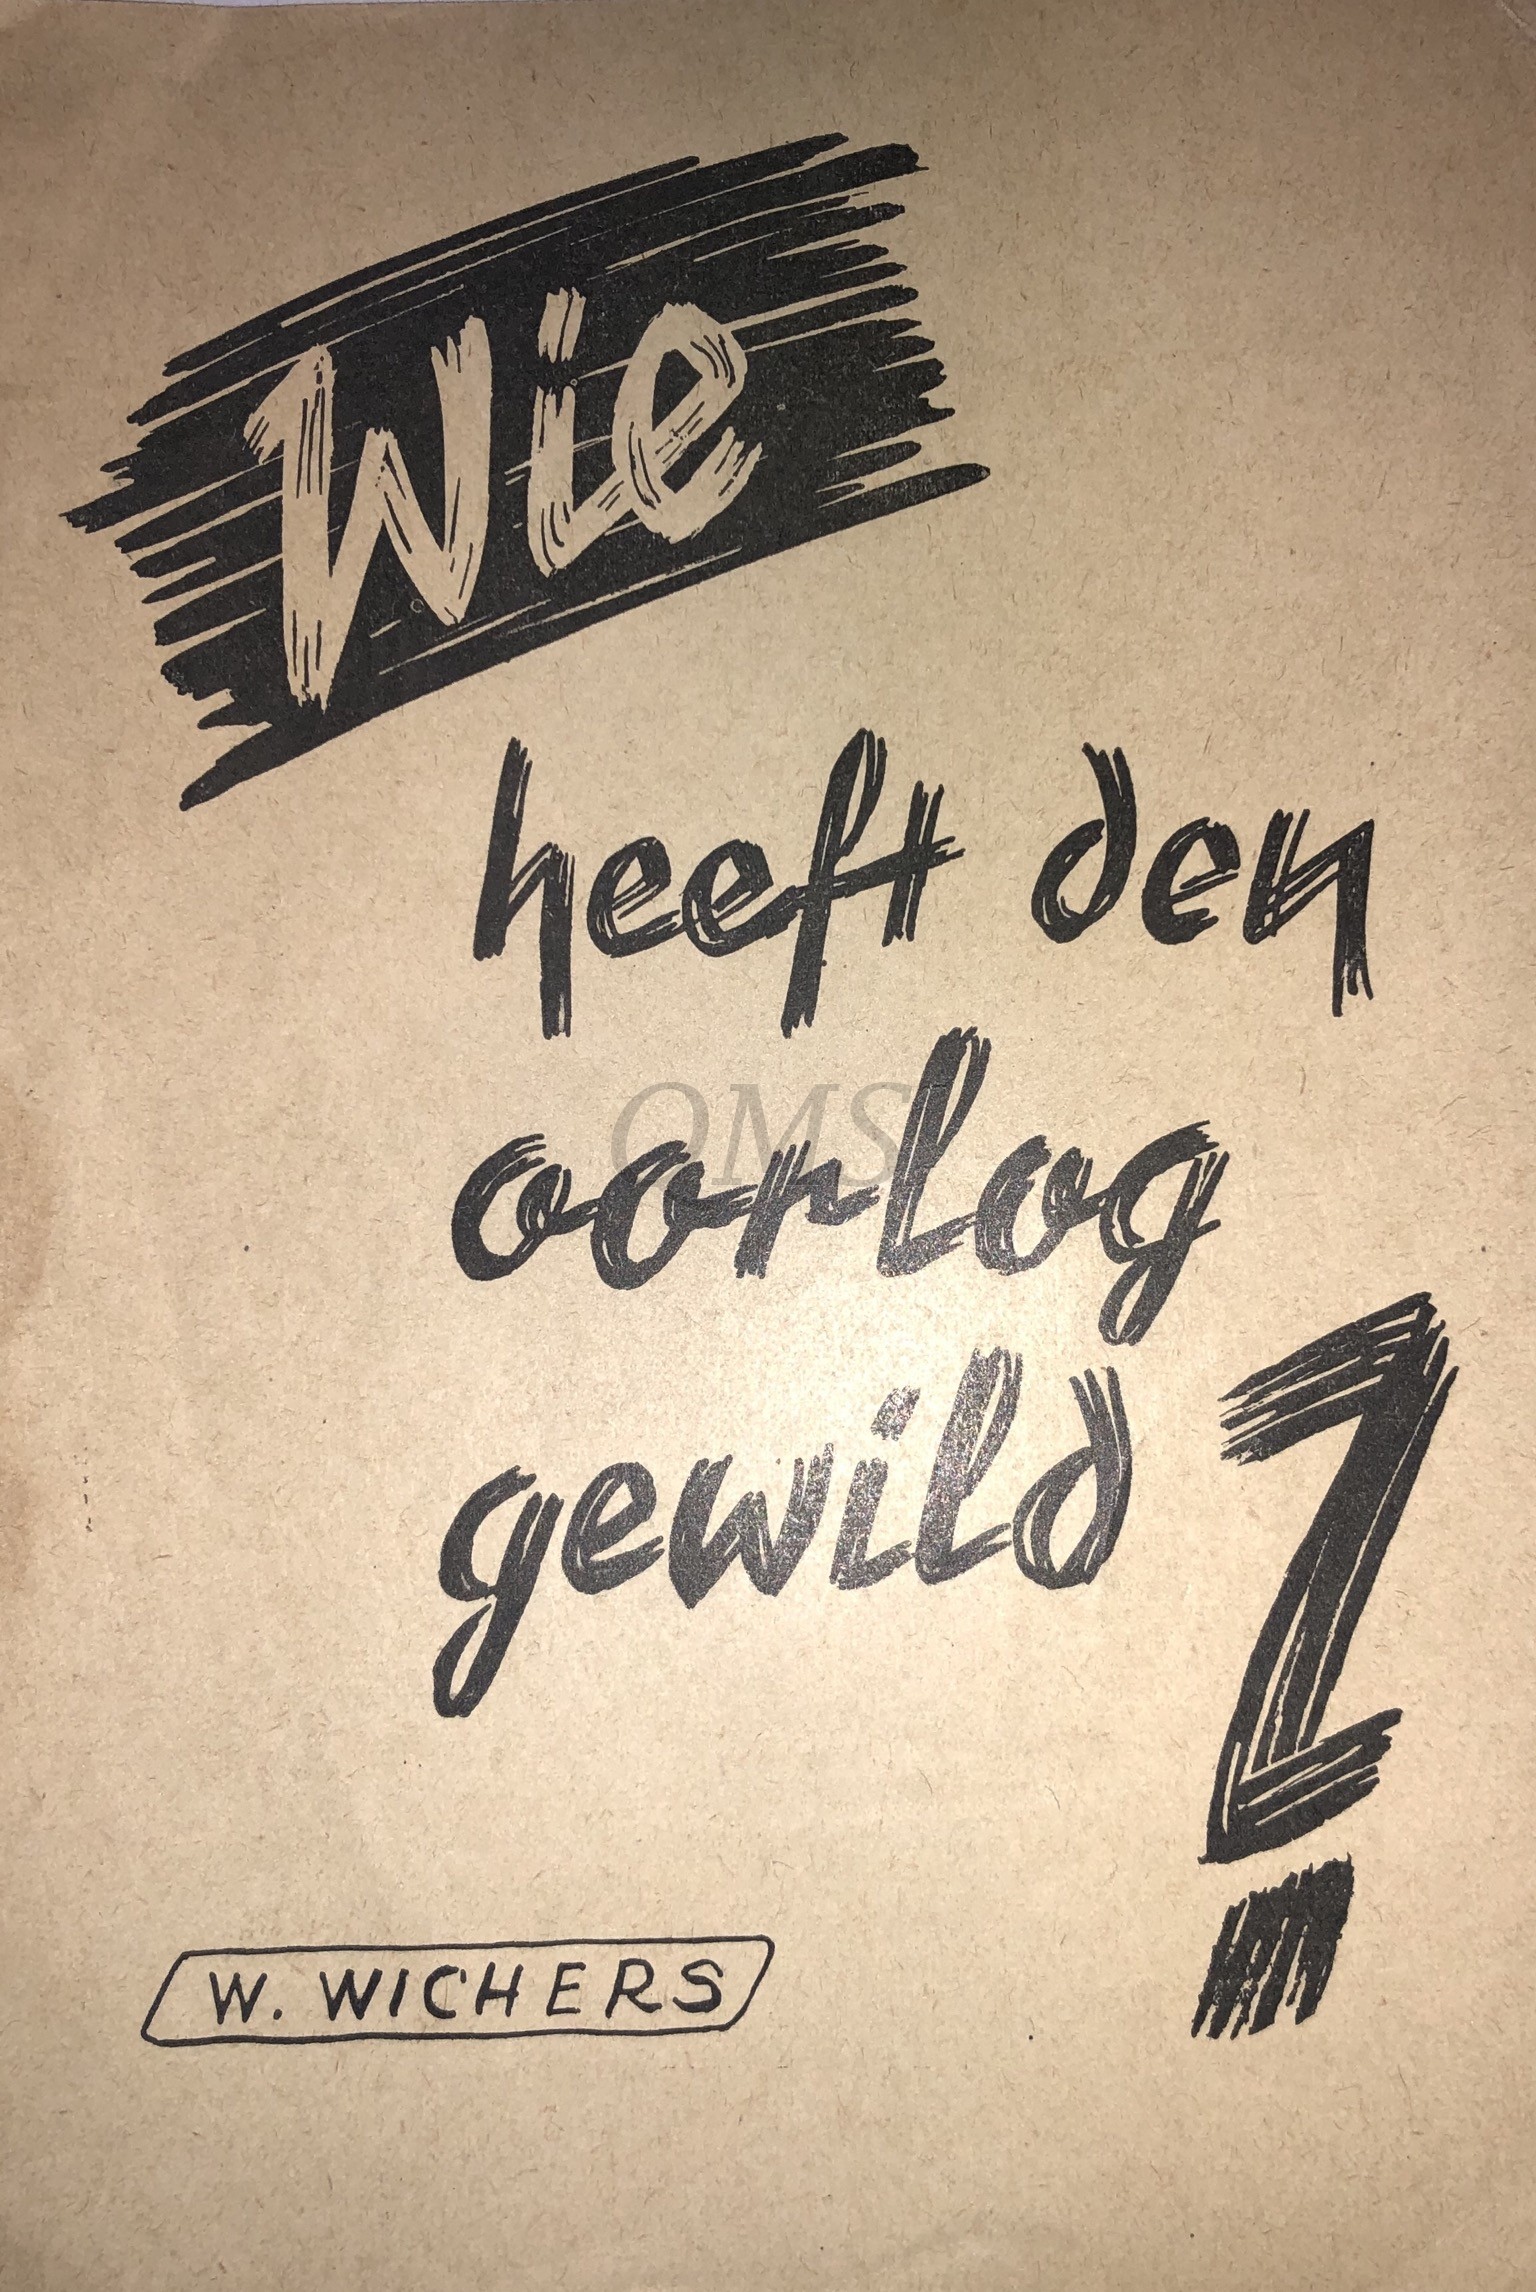 Wie
heeft den
oorlog
gewild?
W. WICHERS
OMS